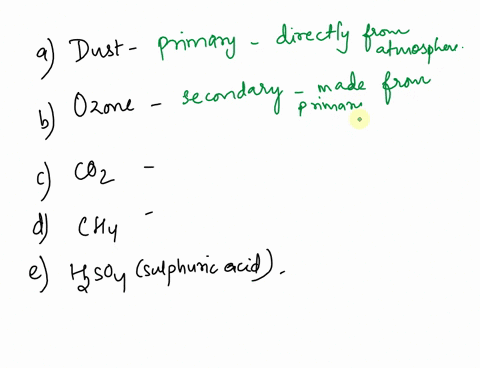 a) Dust - primary - directly from
atmosphere.
b) Ozone - secondary - made from
primary
c) CO2 -
d) CH4 -
e) H2SO4 (sulphuric acid).